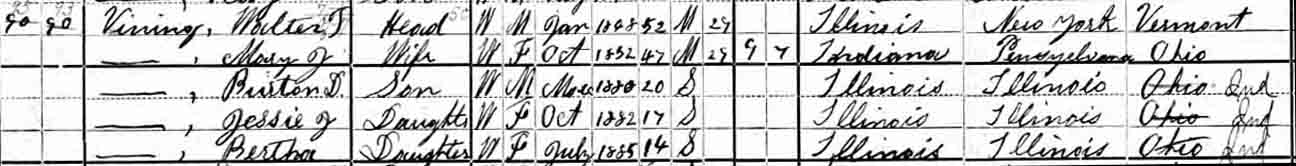 90 90 Vining, Walter T Head W M Jan 1848 52 M 29 Illinois New York Vermont
—, Mary J Wife W F Oct 1852 47 M 29 9 7 Indiana Pennsylvania Ohio
—, Burton D. Son W M Mar 1880 20 S Illinois Illinois Ohio Ind
—, Jessie J Daughter W F Oct 1882 17 S Illinois Illinois Ohio Ind
—, Bertha Daughter W F July 1885 14 S Illinois Illinois Ohio Ind